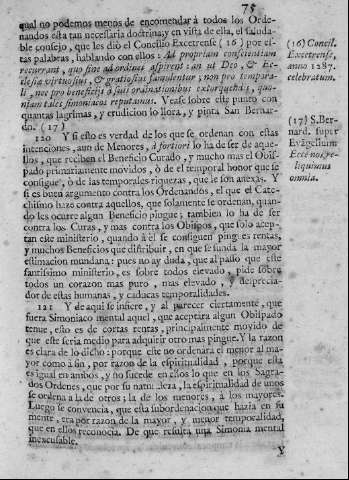 75
qual no podemos menos de encomendar à todos los Orde-
nandos esta tan necesaria doctrina; y en vista de ella, el saluda-
ble consejo, que les diò el Concilio Excetrense (16) por es-
tas palabras, hablando con ellos: Ad propriam conscientiam
recurrant, quo fine ad ordines aspirent: an ut Deo, & Ec-
clesiæ virtuosius, & gratiosius famulentur; non pro tempora-
li, nec pro beneficijs à suis ordinationibus extorquendis; quo-
niam tales simoniacos reputamus. Vease sobre este punto con
quantas lagrimas, y erudicion lo llora, y pinta San Bernar-
do. (17)
120 Y si esto es verdad de los que se ordenan con estas
intenciones, aun de Menores, à fortiori lo ha de ser de aque-
llos, que reciben el Beneficio Curado, y mucho mas el Obis-
pado primariamente movidos, ò de el temporal honor que se
consigue, ò de las temporales riquezas, que le son anexas. Y
si es buen argumento contra los Ordenandos, el que el Cate-
chismo hazo contra aquellos, que solamente se ordenan, quan-
do les ocurre algun Beneficio pingue; tambien lo ha de ser
contra los Curas, y mas contra los Obispos, que solo acep-
tan este ministerio, quando à èl se consiguen pingues rentas,
y muchos Beneficios que distribuir, en que se funda la mayor
estimacion mundana: pues no ay duda, que al passo que este
santissimo ministerio, es sobre todos elevado, pide sobre
todos un corazon mas puro, mas elevado, y desprecia-
dor de estas humanas, y caducas temporalidades.
121 Y de aqui se infiere, y al parecer ciertamente, que
fuera Simoniaco mental aquel, que aceptara algun Obispado
tenue, esto es de cortas rentas, principalmente movido de
que este seria medio para adquirir otro mas pingue. Y la razon
es clara de lo dicho: porque este no ordenara el menor al ma-
yor como à fin, por razon de la espiritualidad, porque esta
es igual en ambos, y no sucede en esos lo que en los Sagra-
dos Ordenes, que por su naturaleza, la espiritualidad de unos
se ordena a la de otros; la de los menores, à los mayores.
Luego se convencia, que esta subordenacion que hazia en su
mente, era por razon de la mayor, y menor temporalidad,
que en ellos reconocia. De que resulta una Simonia mental
inexcusable.
Y
(16) Concil.
Excetrense,
anno 1287.
celebratum.
(17) S. Ber-
nard. super
Evãgelium
Ecce nos re-
liquimus
omnia.